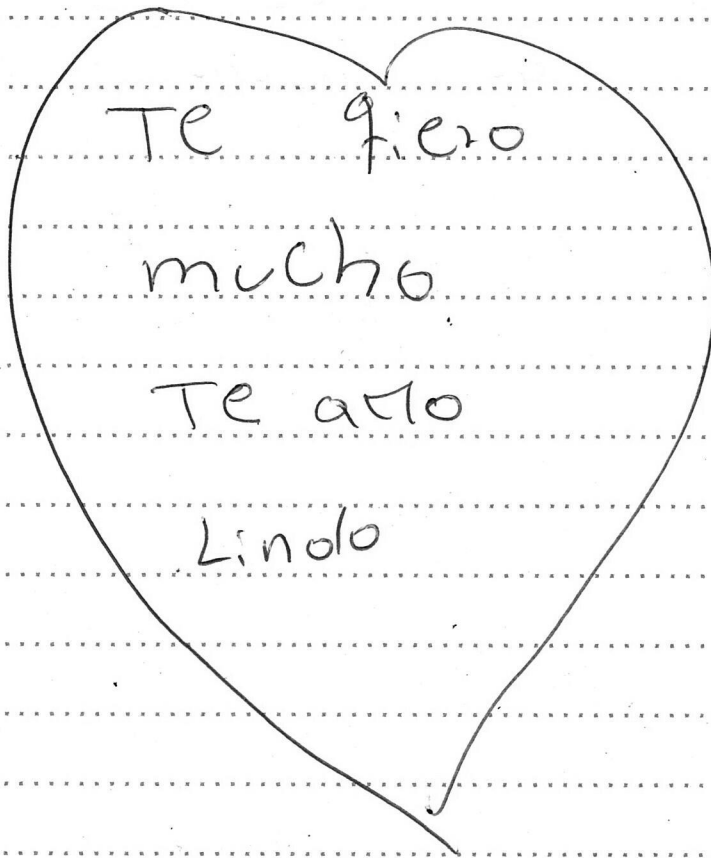 Te qiero
mucho
Te amo
Lindo